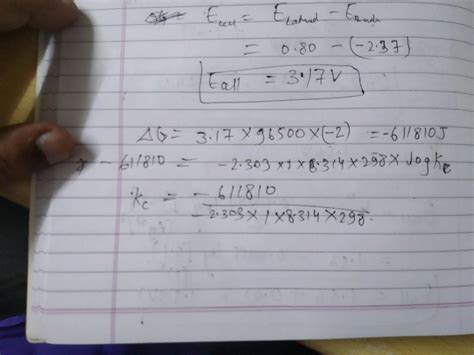 E cell = E cathod - E anode
= 0.80 - (-2.37)
E cell = 3.17 V
ΔG = 3.17 × 96500 × (-2) = -611810 J
- 611810 = -2.303 × 1 × 8.314 × 298 × log Kc
Kc = - 611810
-2.303 × 1 × 8.314 × 298